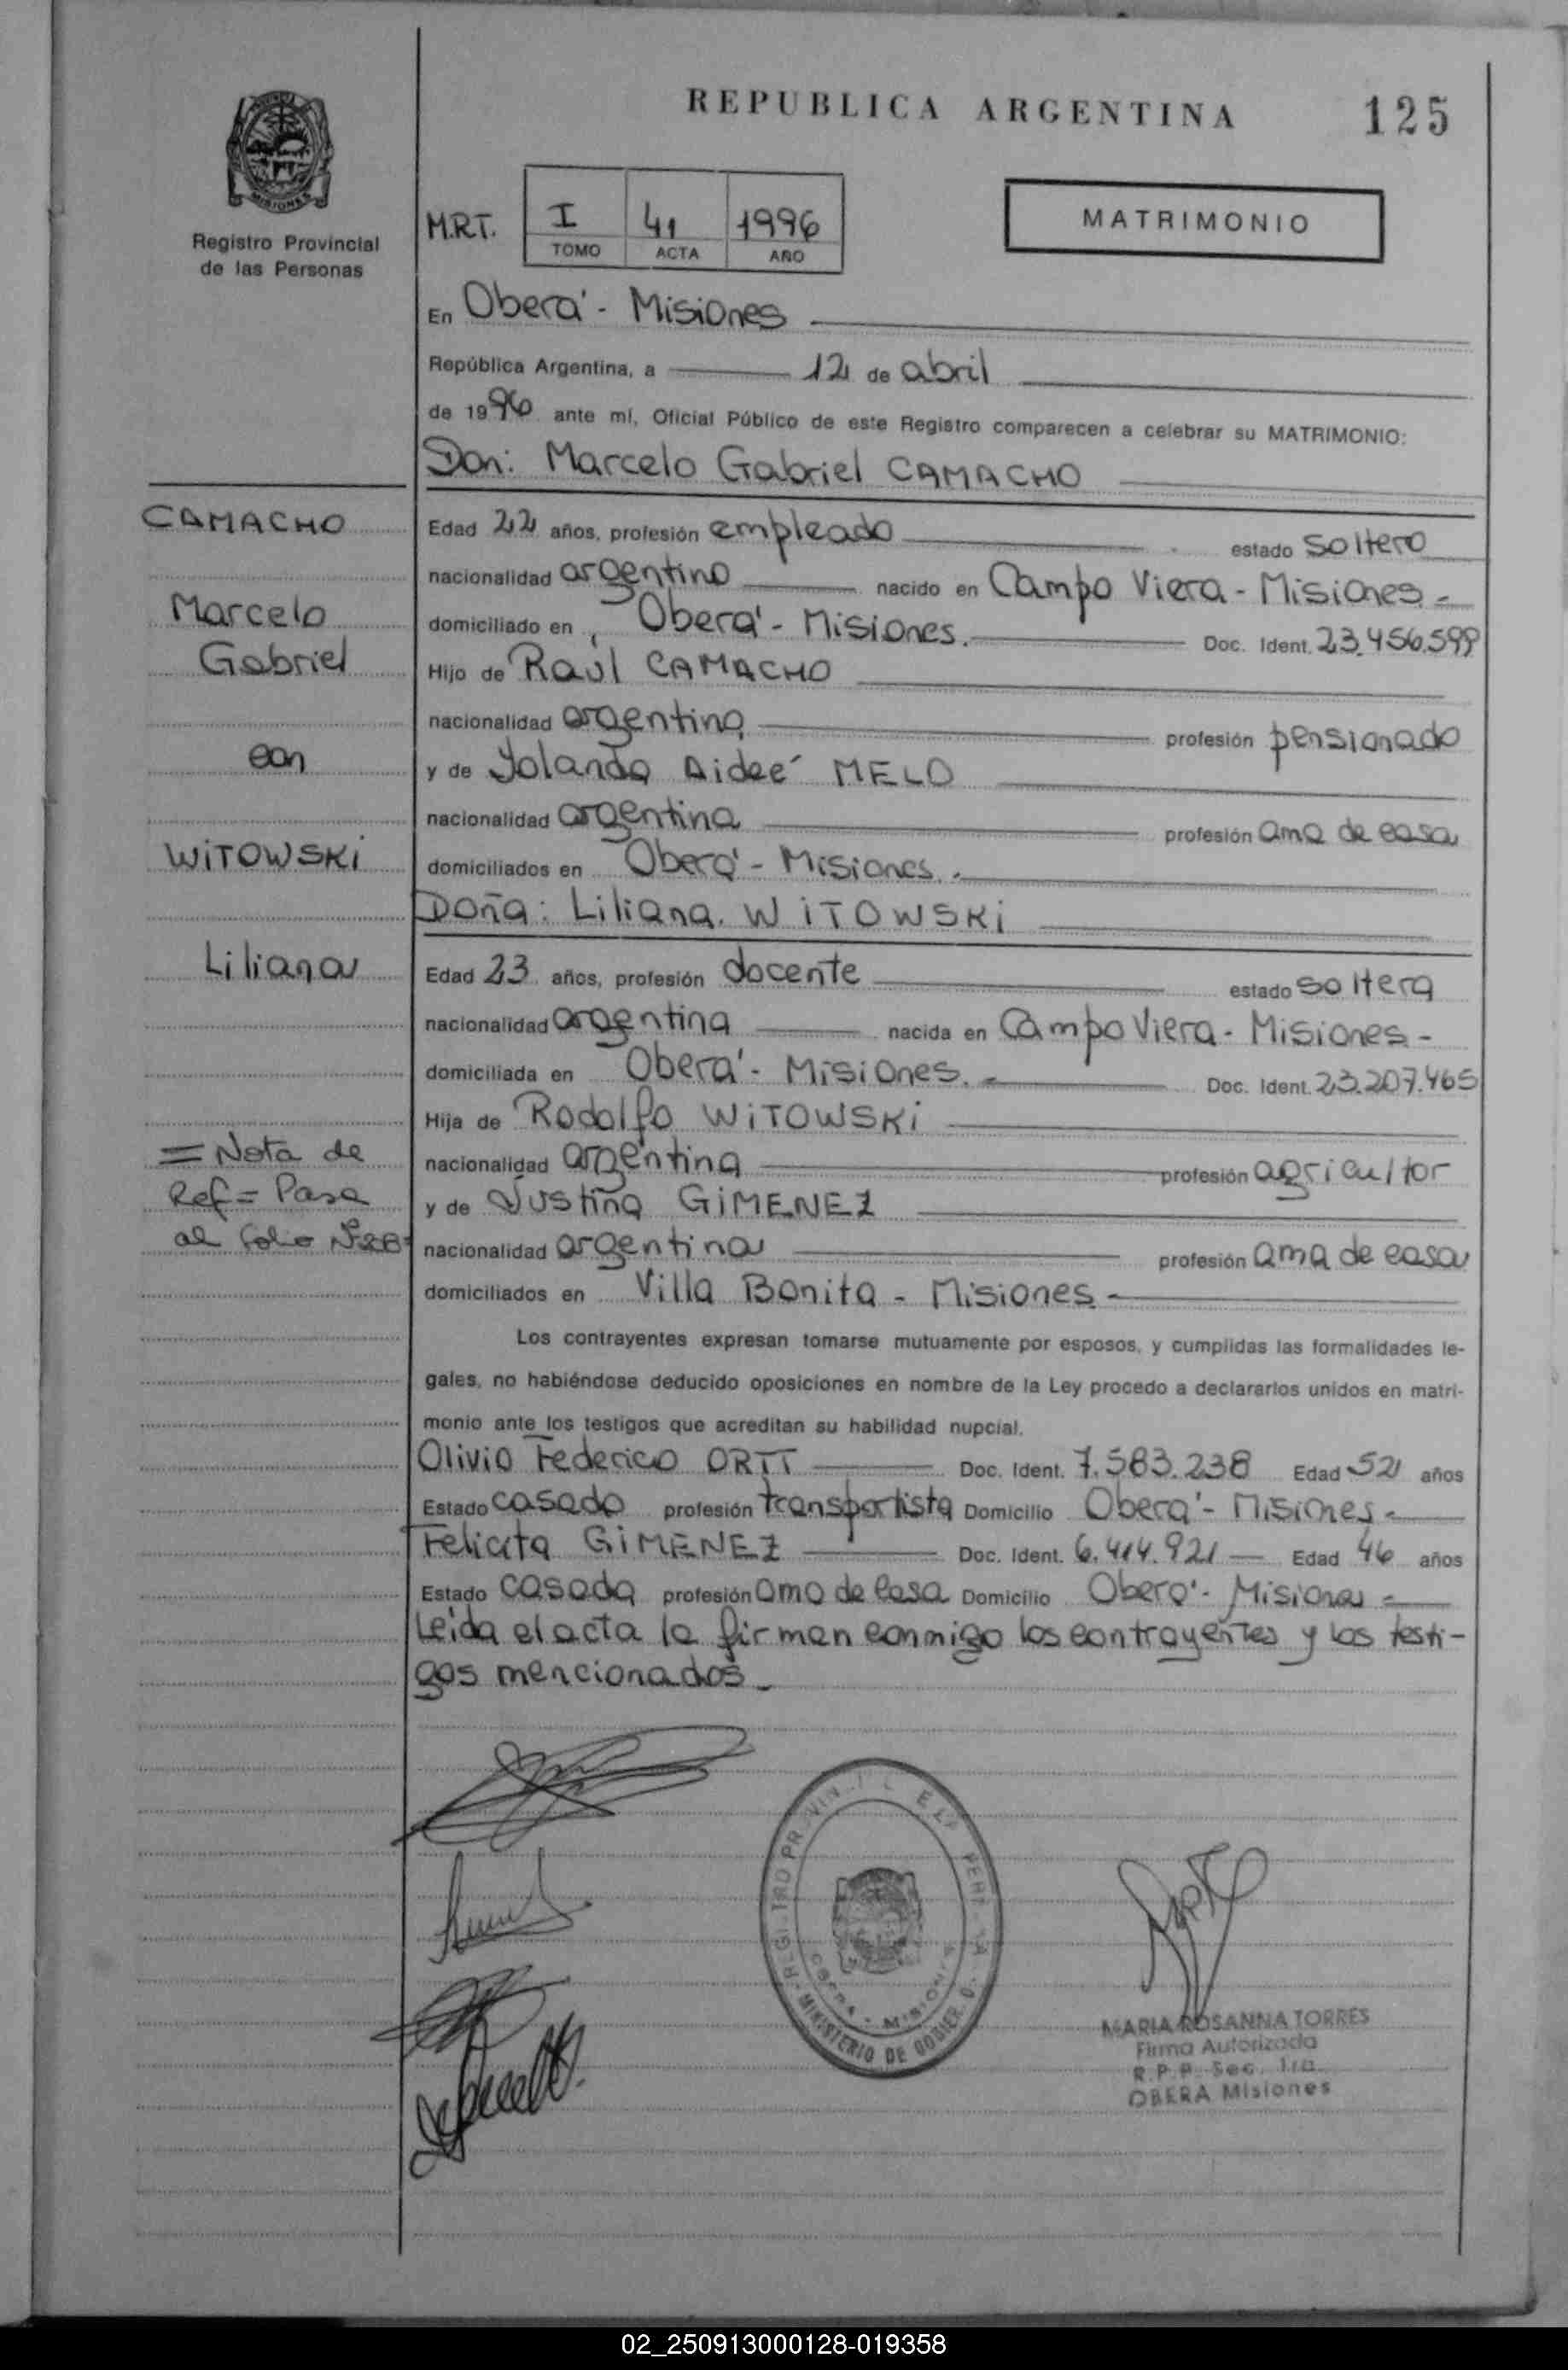 REPUBLICA ARGENTINA 125
MISIONES
Registro Provincial
de las Personas
M.R.T. I 41 1996
TOMO ACTA AÑO
MATRIMONIO
En Oberá - Misiones
República Argentina, a 12 de abril
de 1996 ante mí, Oficial Público de este Registro comparecen a celebrar su MATRIMONIO:
Don: Marcelo Gabriel CAMACHO
CAMACHO
Marcelo
Gabriel
con
WITOWSKI
Liliana
= Nota de
Ref = Pasa
al folio
Edad 22 años, profesión empleado estado soltero
nacionalidad argentino nacido en Campo Viera - Misiones -
domiciliado en Oberá - Misiones. Doc. Ident. 23.456.599
Hijo de Raúl CAMACHO
nacionalidad argentina profesión pensionado
y de Yolanda Aideé MELO
nacionalidad argentina profesión ama de casa
domiciliados en Oberá - Misiones. -
Doña: Liliana. WITOWSKI
Edad 23 años, profesión docente estado soltera
nacionalidad argentina nacida en Campo Viera - Misiones -
domiciliada en Oberá - Misiones. - Doc. Ident. 23.207.465
Hija de Rodolfo WITOWSKI
nacionalidad argentina profesión agricultor
y de Justina GIMENEZ
nacionalidad argentina profesión ama de casa
domiciliados en Villa Bonita - Misiones -
Los contrayentes expresan tomarse mutuamente por esposos, y cumplidas las formalidades le-
gales, no habiéndose deducido oposiciones en nombre de la Ley procedo a declararlos unidos en matri-
monio ante los testigos que acreditan su habilidad nupcial.
Olivio Federico ORTT Doc. Ident. 7.583.238 Edad 52 años
Estado casado profesión transportista Domicilio Oberá - Misiones -
Felicita GIMENEZ Doc. Ident. 6.414.921 Edad 46 años
Estado casada profesión ama de casa Domicilio Oberá - Misiones -
Leida el acta la firman conmigo los contrayentes y los testi-
gos mencionados -
MINISTERIO DE GOBIER
OBERA - MISIONES
MARIA ROSANNA TORRES
Firma Autorizada
R. P. P. Sec. 1ra.
OBERA Misiones
02_250913000128-019358